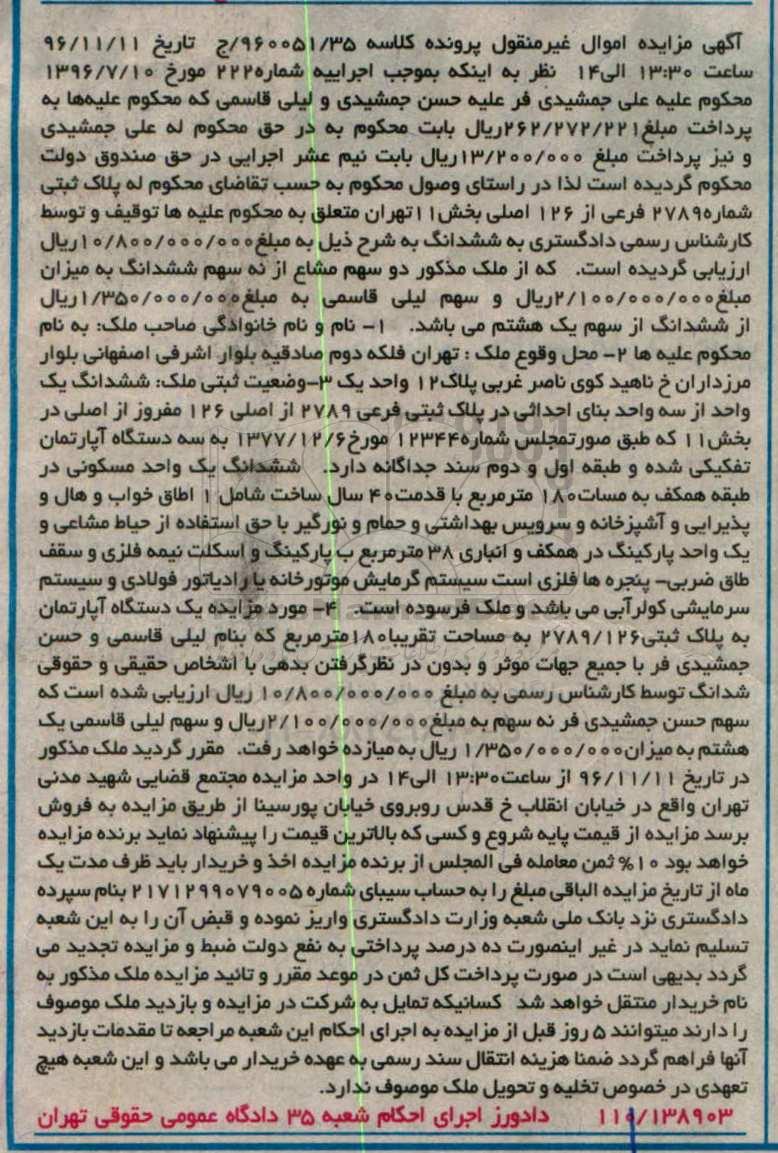 آگهی مزایده اموال غیرمنقول پرونده کلاسه ۹۶۰۰۵۱/۳۵/ج تاریخ ۹۶/۱۱/۱۱
ساعت ۱۳:۳۰ الی۱۴ نظر به اینکه بموجب اجراییه شماره۲۲۲ مورخ ۱۳۹۶/۷/۱۰
محکوم علیه علی جمشیدی فر علیه حسن جمشیدی و لیلی قاسمی که محکوم علیه‌ها به
پرداخت مبلغ۲۶۲/۲۷۲/۲۲۱ریال بابت محکوم به در حق محکوم له علی جمشیدی
و نیز پرداخت مبلغ ۱۳/۲۰۰/۰۰۰ریال بابت نیم عشر اجرایی در حق صندوق دولت
محکوم گردیده است لذا در راستای وصول محکوم به حسب تقاضای محکوم له پلاک ثبتی
شماره۲۷۸۹ فرعی از ۱۲۶ اصلی بخش۱۱تهران متعلق به محکوم علیه ها توقیف و توسط
کارشناس رسمی دادگستری به ششدانگ به شرح ذیل به مبلغ۱۰/۸۰۰/۰۰۰/۰۰۰ریال
ارزیابی گردیده است. که از ملک مذکور دو سهم مشاع از نه سهم ششدانگ به میزان
مبلغ۲/۱۰۰/۰۰۰/۰۰۰ریال و سهم لیلی قاسمی به مبلغ۱/۳۵۰/۰۰۰/۰۰۰ریال
از ششدانگ از سهم یک هشتم می باشد. ۱- نام و نام خانوادگی صاحب ملک: به نام
محکوم علیه ها ۲- محل وقوع ملک : تهران فلکه دوم صادقیه بلوار اشرفی اصفهانی بلوار
مرزداران خ ناهید کوی ناصر غربی پلاک۱۲ واحد یک ۳-وضعیت ثبتی ملک: ششدانگ یک
واحد از سه واحد بنای احداثی در پلاک ثبتی فرعی ۲۷۸۹ از اصلی ۱۲۶ مفروز از اصلی در
بخش۱۱ که طبق صورتمجلس شماره۱۲۳۴۴ مورخ۱۳۷۷/۱۲/۶ به سه دستگاه آپارتمان
تفکیکی شده و طبقه اول و دوم سند جداگانه دارد. ششدانگ یک واحد مسکونی در
طبقه همکف به مسات۱۸۰ مترمربع با قدمت۴۰ سال ساخت شامل ۱ اطاق خواب و هال و
پذیرایی و آشپزخانه و سرویس بهداشتی و حمام و نورگیر با حق استفاده از حیاط مشاعی و
یک واحد پارکینگ در همکف و انباری ۳۸ مترمربع ب پارکینگ و اسکلت نیمه فلزی و سقف
طاق ضربی- پنجره ها فلزی است سیستم گرمایش موتورخانه یا رادیاتور فولادی و سیستم
سرمایشی کولرآبی می باشد و ملک فرسوده است. ۴- مورد مزایده یک دستگاه آپارتمان
به پلاک ثبتی۲۷۸۹/۱۲۶ به مساحت تقریبا۱۸۰مترمربع که بنام لیلی قاسمی و حسن
جمشیدی فر با جمیع جهات موثر و بدون در نظرگرفتن بدهی با اشخاص حقیقی و حقوقی
شدانگ توسط کارشناس رسمی به مبلغ ۱۰/۸۰۰/۰۰۰/۰۰۰ ریال ارزیابی شده است که
سهم حسن جمشیدی فر نه سهم به مبلغ۲/۱۰۰/۰۰۰/۰۰۰ریال و سهم لیلی قاسمی یک
هشتم به میزان۱/۳۵۰/۰۰۰/۰۰۰ ریال به میازده خواهد رفت. مقرر گردید ملک مذکور
در تاریخ ۹۶/۱۱/۱۱ از ساعت۱۳:۳۰ الی۱۴ در واحد مزایده مجتمع قضایی شهید مدنی
تهران واقع در خیابان انقلاب خ قدس روبروی خیابان پورسینا از طریق مزایده به فروش
برسد مزایده از قیمت پایه شروع و کسی که بالاترین قیمت را پیشنهاد نماید برنده مزایده
خواهد بود ۱۰% ثمن معامله فی المجلس از برنده مزایده اخذ و خریدار باید ظرف مدت یک
ماه از تاریخ مزایده الباقی مبلغ را به حساب سیبای شماره ۲۱۷۱۲۹۹۰۷۹۰۰۵ بنام سپرده
دادگستری نزد بانک ملی شعبه وزارت دادگستری واریز نموده و قبض آن را به این شعبه
تسلیم نماید در غیر اینصورت ده درصد پرداختی به نفع دولت ضبط و مزایده تجدید می
گردد بدیهی است در صورت پرداخت کل ثمن در موعد مقرر و تائید مزایده ملک مذکور به
نام خریدار منتقل خواهد شد کسانیکه تمایل به شرکت در مزایده و بازدید ملک موصوف
را دارند میتوانند ۵ روز قبل از مزایده به اجرای احکام این شعبه مراجعه تا مقدمات بازدید
آنها فراهم گردد ضمنا هزینه انتقال سند رسمی به عهده خریدار می باشد و این شعبه هیچ
تعهدی در خصوص تخلیه و تحویل ملک موصوف ندارد.
۱۱۰/۱۳۸۹۰۳ دادورز اجرای احکام شعبه ۳۵ دادگاه عمومی حقوقی تهران